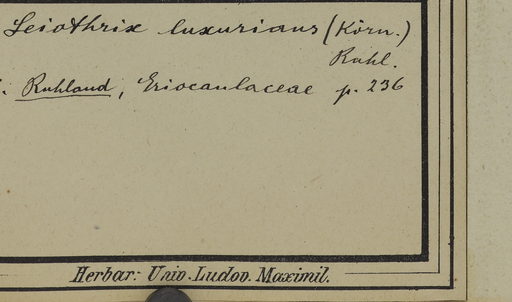 Leiothrix luxurians (Körn.)
Ruhl.
Ruhland, Eriocaulaceae p. 236
Herbar: Univ. Ludov. Maximil.